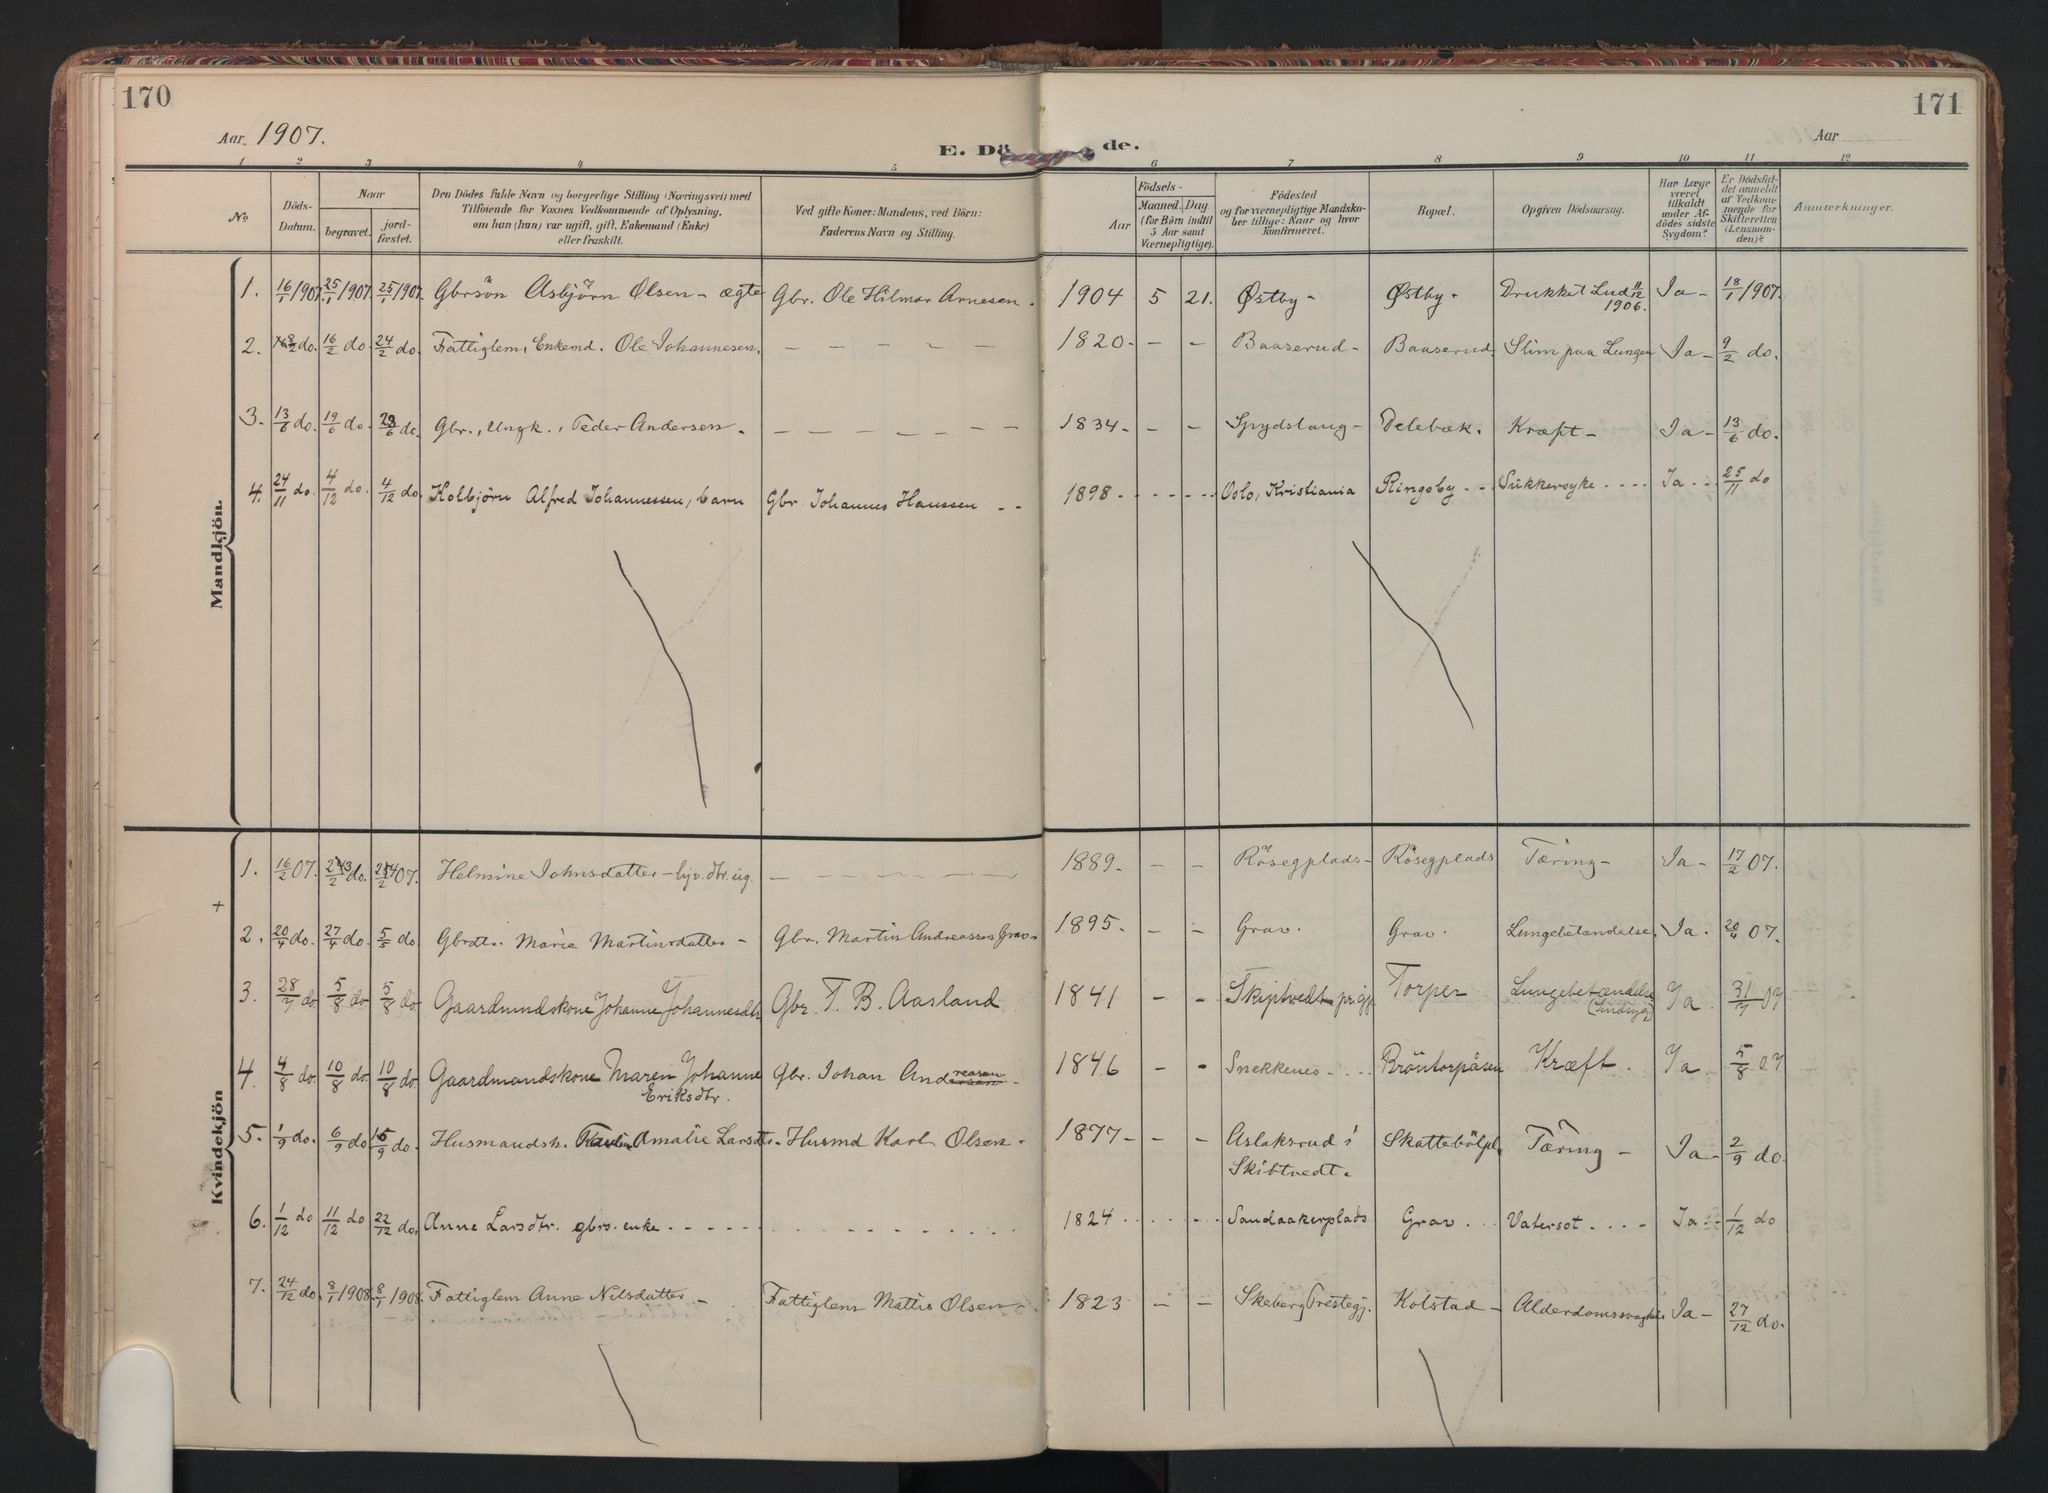 170
171
Aar 1907.
Aar
E. Dö de.
1 2 3 4 5 6 7 8 9 10 11 12
No.
Döds-
Datum.
Naar
begravet.
jord-
fæstet.
Den Dödes fulde Navn og borgerlige Stilling (Næringsvei) med
Tilföiende for Voxnes Vedkommende af Oplysning,
om han (hun) var ugift, gift, Enkemand (Enke)
eller fraskilt.
Ved gifte Koner: Mandens, ved Börn:
Faderens Navn og Stilling.
Födsels-
Aar
Maaned. Dag
(for Börn indtil
5 Aar samt
Værnepligtige).
Födested
og for værnepligtige Mandska-
ber tillige: Naar og hvor
konfirmeret.
Bopæl.
Opgiven Dödsaarsag.
Har Læge
været
tilkaldt
under Af-
dödes sidste
Sygdom?
Er Dödsfal-
det anmeldt
af Vedkom-
mende for
Skifteretten
(Lensman-
den)?
Anmærkninger.
Mandkjön.
1. 16/1 1907. 25/1 1907. 25/1 1907. Gbrsön Asbjörn Olsen - ægte Gbr. Ole Hilmar Arnesen. 1904 5 21. Østby - Østby. Drukket Lud 11/12 1906. Ja - 18/1 1907.
2. 8/2 do. 16/2 do. 24/2 do. Fattiglem, Enkemd. Ole Johannesen. - - - - - 1820 - - - Baaserud - Baaserud Slim paa Lungen Ja - 9/2 do.
3. 13/6 do. 19/6 do. 23/6 do. Gbr., Ungk., Peder Andersen. - - - - - - 1834 - - - Delebæk. Kræft - Ja - 13/6 do.
4. 24/11 do. 4/12 do. 4/12 do. Kolbjörn Alfred Johannessen, barn Gbr Johannes Hanssen - - 1898 - - - - - Oslo, Kristiania Ringsby - - Sukkersyke - - - - Ja - - 25/11 do
Kvindekjön
1. 16/2 07. 23/2 do. 24/2 07. Helmine Johnsdatter - ug. - - - - - - 1889. - - Rösegplads - Rösegplads Tæring - Ja - 17/2 07.
+
2. 20/4 do. 27/4 do. 5/5 do Gbrdt. Marie Martinsdatter - Gbr. Martin Andreassen Grav - 1895. - - Grav. Grav. Lungebetændelse. Ja. 20/4 07.
3. 28/7 do 5/8 do 5/8 do. Gaardmandskone Johanne Johannesdtr Gbr. T. B. Aasland 1841 - - Skiptvedt prgj Torper Lungebetændelse
(Sindsyg) Ja. 31/7 07
4. 4/8 do. 10/8 do. 10/8 do. Gaardmandskone Maren Johanne
Eriksdtr. Gbr. Johan Andreasen - 1846 - - Snekkenes - . . . Bröntorpåsen Kræft. Ja. 5/8 07
5. 1/9 do. 6/9 do 15/9 do. Husmandsk. Amalie Larsdtr. Husmd Karl Olsen - 1877 - - - Aslaksrud i
Skibtvedt. Skattebölpl. Tæring - Ja - 2/9 do.
6. 1/12 do 11/12 do 22/12 do. Anne Larsdtr. gbrs. enke - - - - - 1824 . . . . . . Sandaakerplads Grav . . Vatersot . . . - Ja . . 1/12 do
7. 24/12 do. 8/1 1908. 8/1 1908. Fattiglem Anne Nilsdatter - Fattiglem Mattis Olsen - 1823 - - Skeberg Prestegj. Kolstad - Alderdomssvaghed. Ja - 27/12 do.